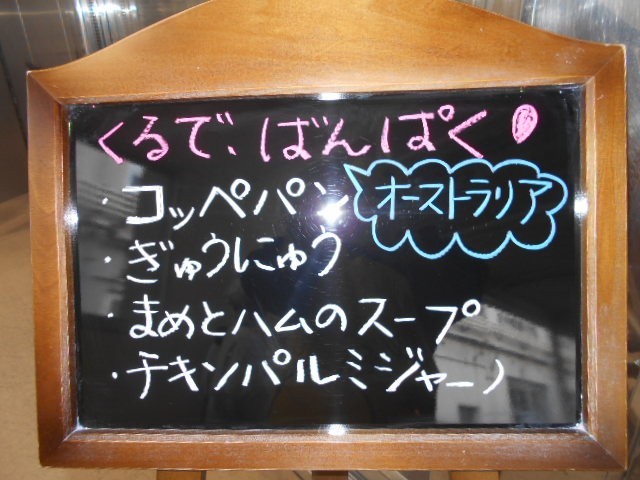 くるで、ばんぱく!
・コッペパン
オーストラリア
・ぎゅうにゅう
・まめとハムのスープ
・チキンパルミジャーノ